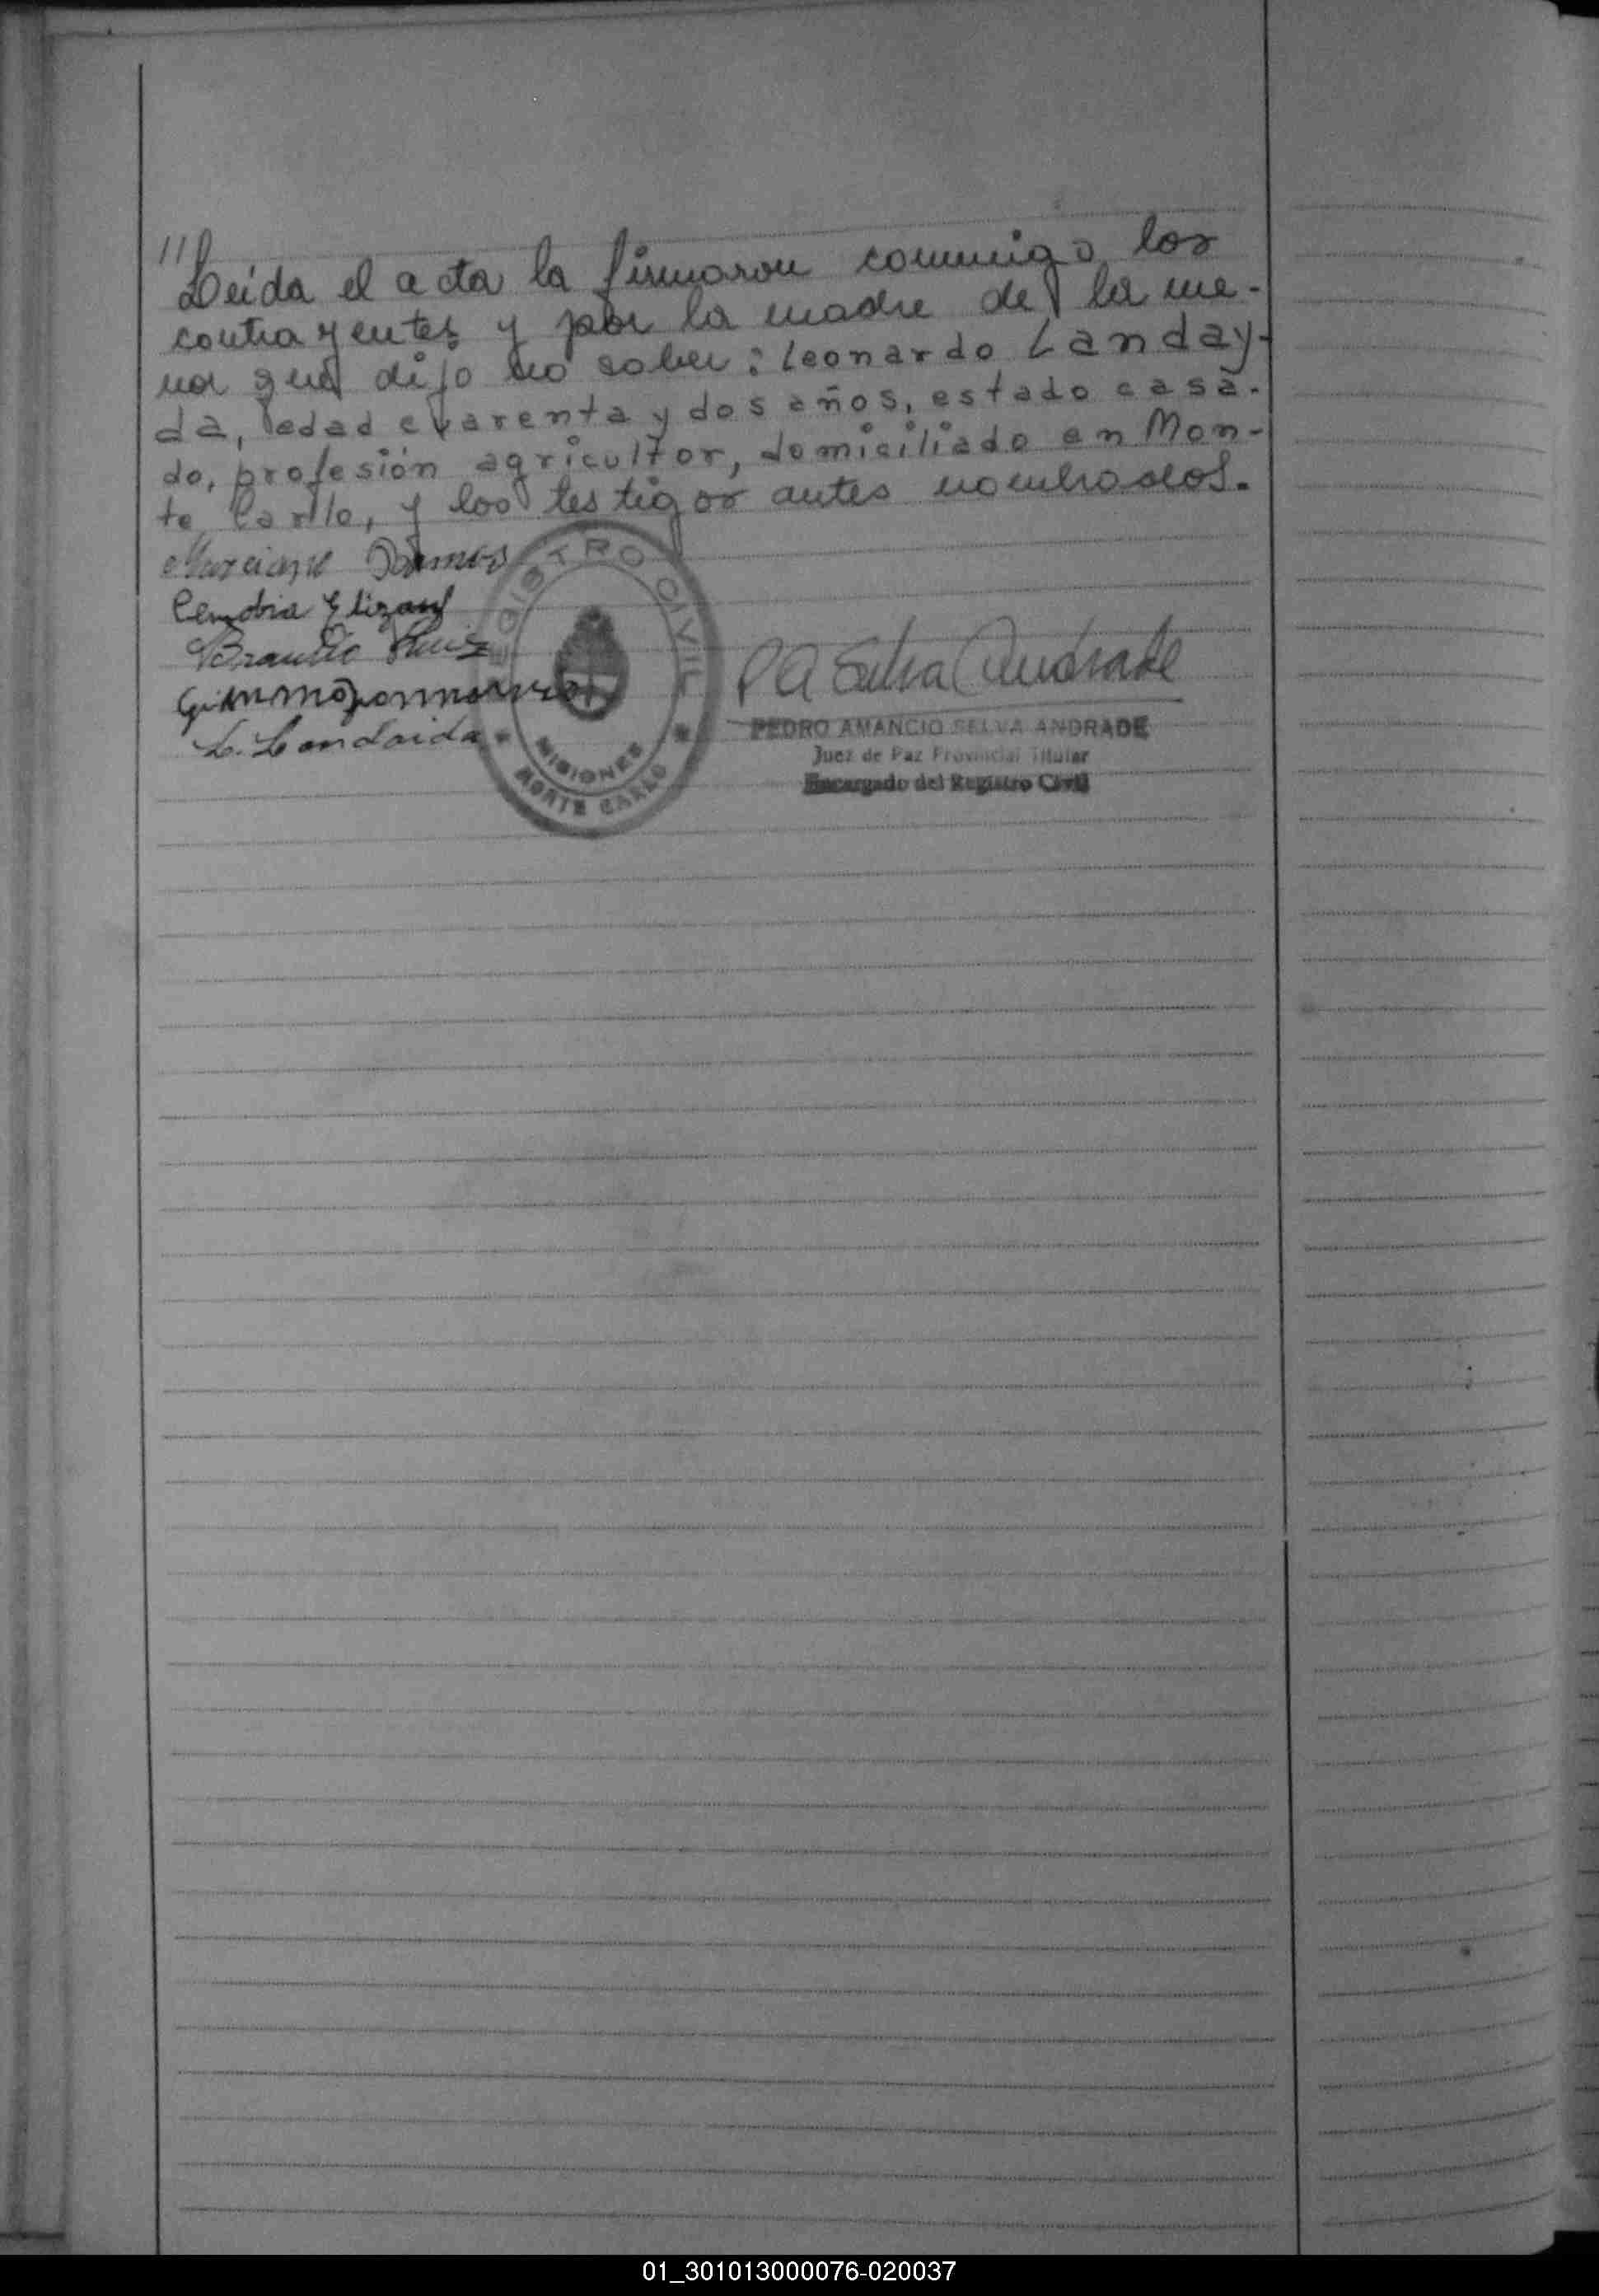 // Leida el acta la firmaron conmigo los
contrayentes y por la madre de la me-
nor que dijo no saber: Leonardo Landay-
da, edad cuarenta y dos años, estado casa-
do, profesión agricultor, domiciliado en Mon-
te Carlo, y los testigos antes nombrados.
Marciano Ramos
Braulio Ruiz
L. Landaida
REGISTRO CIVIL
MISIONES
MONTE CARLO
P A Selva Andrade
PEDRO AMANCIO SELVA ANDRADE
Juez de Paz Provincial Titular
Encargado del Registro Civil
01_301013000076-020037